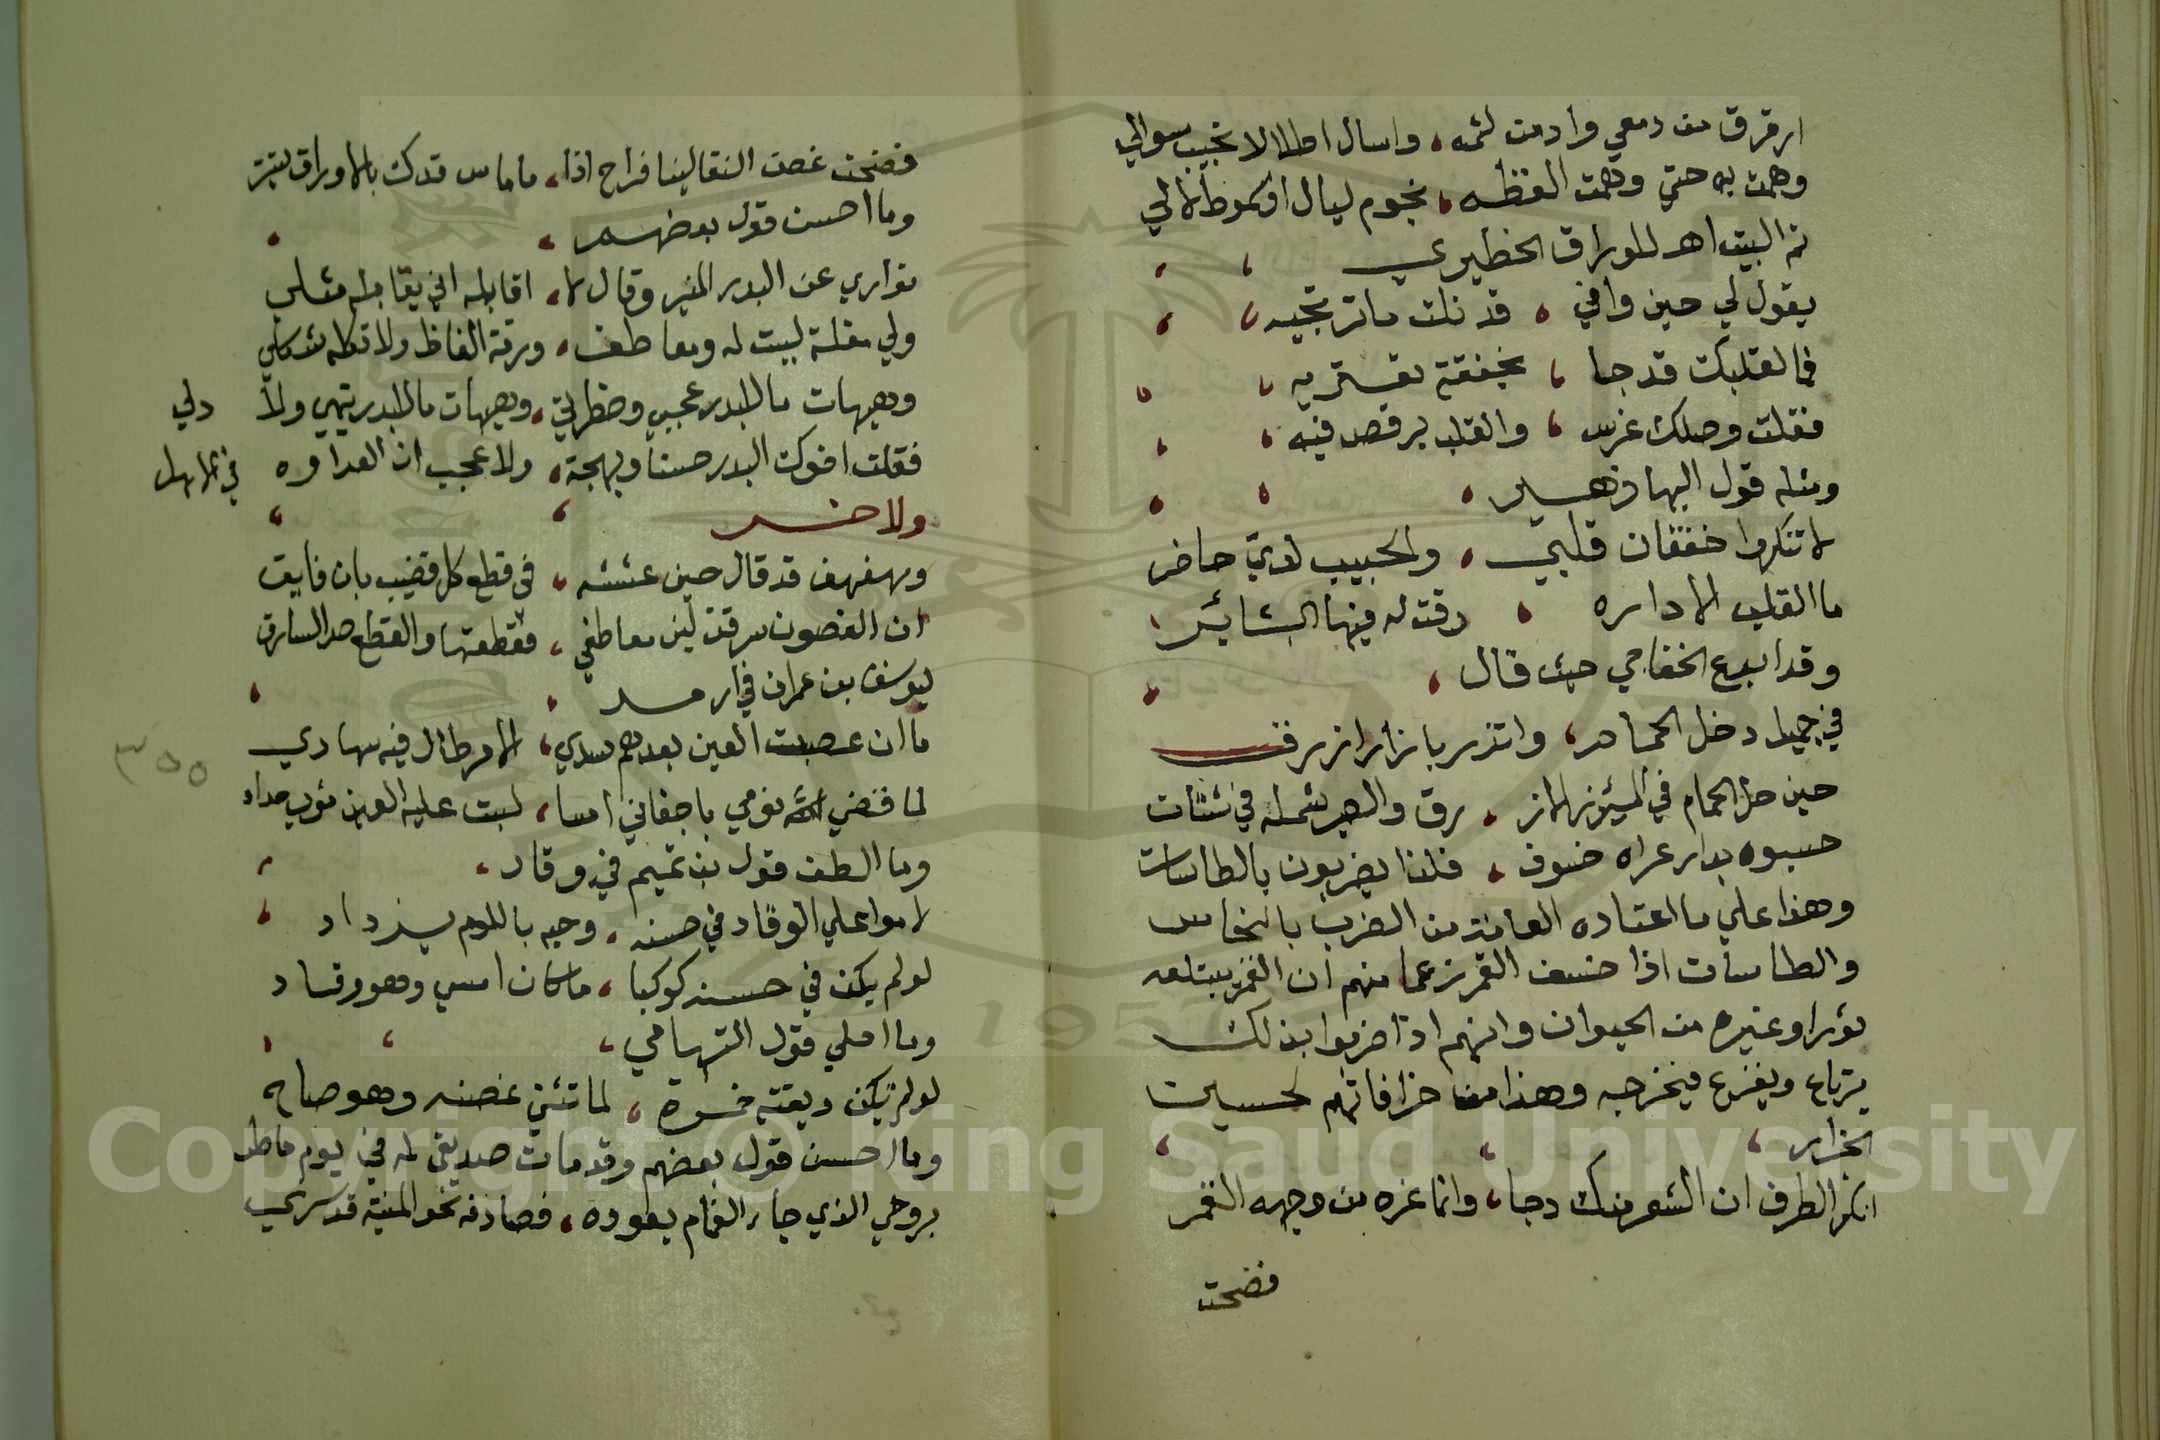 ارقرق من دمعي وادمن لثمه، واسال اطلالا تجيب سوالي
وهمت به حتي وهمت الفظه، نجوم ليال او سموط لالي
تم البيت اهـ للوراق الخطيري
يقول لي حين وافي، قد نلت ما ترتجيه،
فما لقلبك قد جا، بخفقة تعتريه،
فقلت وصلك عرس، والقلب يرقص فيه،
ومثله قول البها زهير،
لا تنكروا خفقان قلبي، والحبيب لدي حاضر
ما القلب الا داره، دقت له فيها البشاير
وقد ابدع الخفاجي حيث قال،
في جميل دخل الحمام، واتزر بازار ازرق
حين حل الحمام في الميزر الاز، رق والصبر شمله في شتات
حسبوه بدار عراه خسوف، فلذا يضربون بالطاسات
وهذا علي ما اعتاده العامة من الضرب بالنحاس
والطاسات اذا خسف القمر زعما منهم ان القمر يبتلعه
ثورا وغيره من الحيوان وانهم اذا ضربوا بذلك
يرتاع ويفزع فيخرجه وهذا من خرافاتهم لحسين
الجزار
انكر الطرف ان الشعر منك دجا، وانما غره من وجهه القمر
فضحت
فضحت غصن النقا لينا فراح اذا، ما ماس قدك بالاوراق يستتر
وما احسن قول بعضهم،
تواري عن البدر المنير وقال لا، اقابله اني يقابله مثلي
ولي مقلة ليست له ومعاطف، ورقة الفاظ ولا شكله شكلي
وهيهات ما للبدر عجبي وخطرتي، وهيهات ما للبدر تيهي ولا دلي
فقلت اخوك البدر حسنا وبهجة، ولا عجب ان العداوه في الاهل
ولاخر
ومهفهف قد قال حين عشقته، في قطع كل قضيب بان فايق
ان الغصون سرقن لين معاطفي، فقطعتها والقطع حد السارق
ليوسف بن عمران في ارمد
ما ان عصبت العين بعدهم سدي، الا مر طال فيه سهادي
لما قضي الله نومي باجفاني اسا، لبست عليه العين ثوب حداد
وما الطف قول بن تميم في وقاد،
لاموا علي الوقاد في حسنه، وحبه باللوم يزداد
لو لم يكن في حسنه كوكبا، ما كان امسي وهو وقاد
وما احلي قول التهامي،
لو لم تكن ريقته خمرة، لما تثني غصنه وهو صاح
وما احسن قول بعضهم وقد مات صديق له في يوم ماطر
بروحي الذي جاء الغمام يعوده، فصادفه نحو المنية قد سري
٣٥٥
Copyright © King Saud University
1957